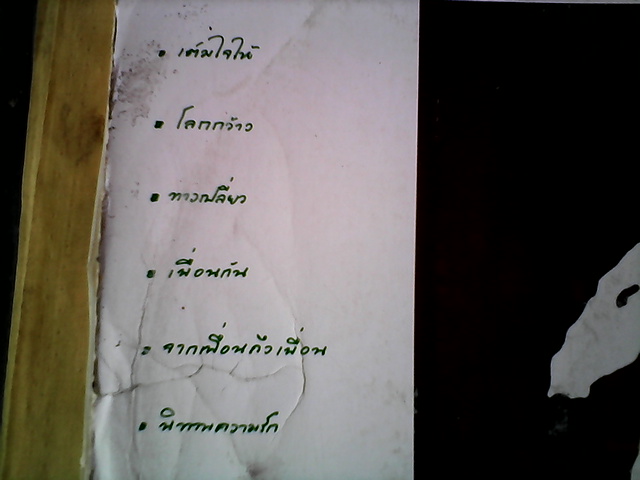 • เต็มใจให้
• โลกกว้าง
• ทางเปลี่ยว
• เพื่อนกัน
• จากเพื่อนถึงเพื่อน
• นิทานความรัก